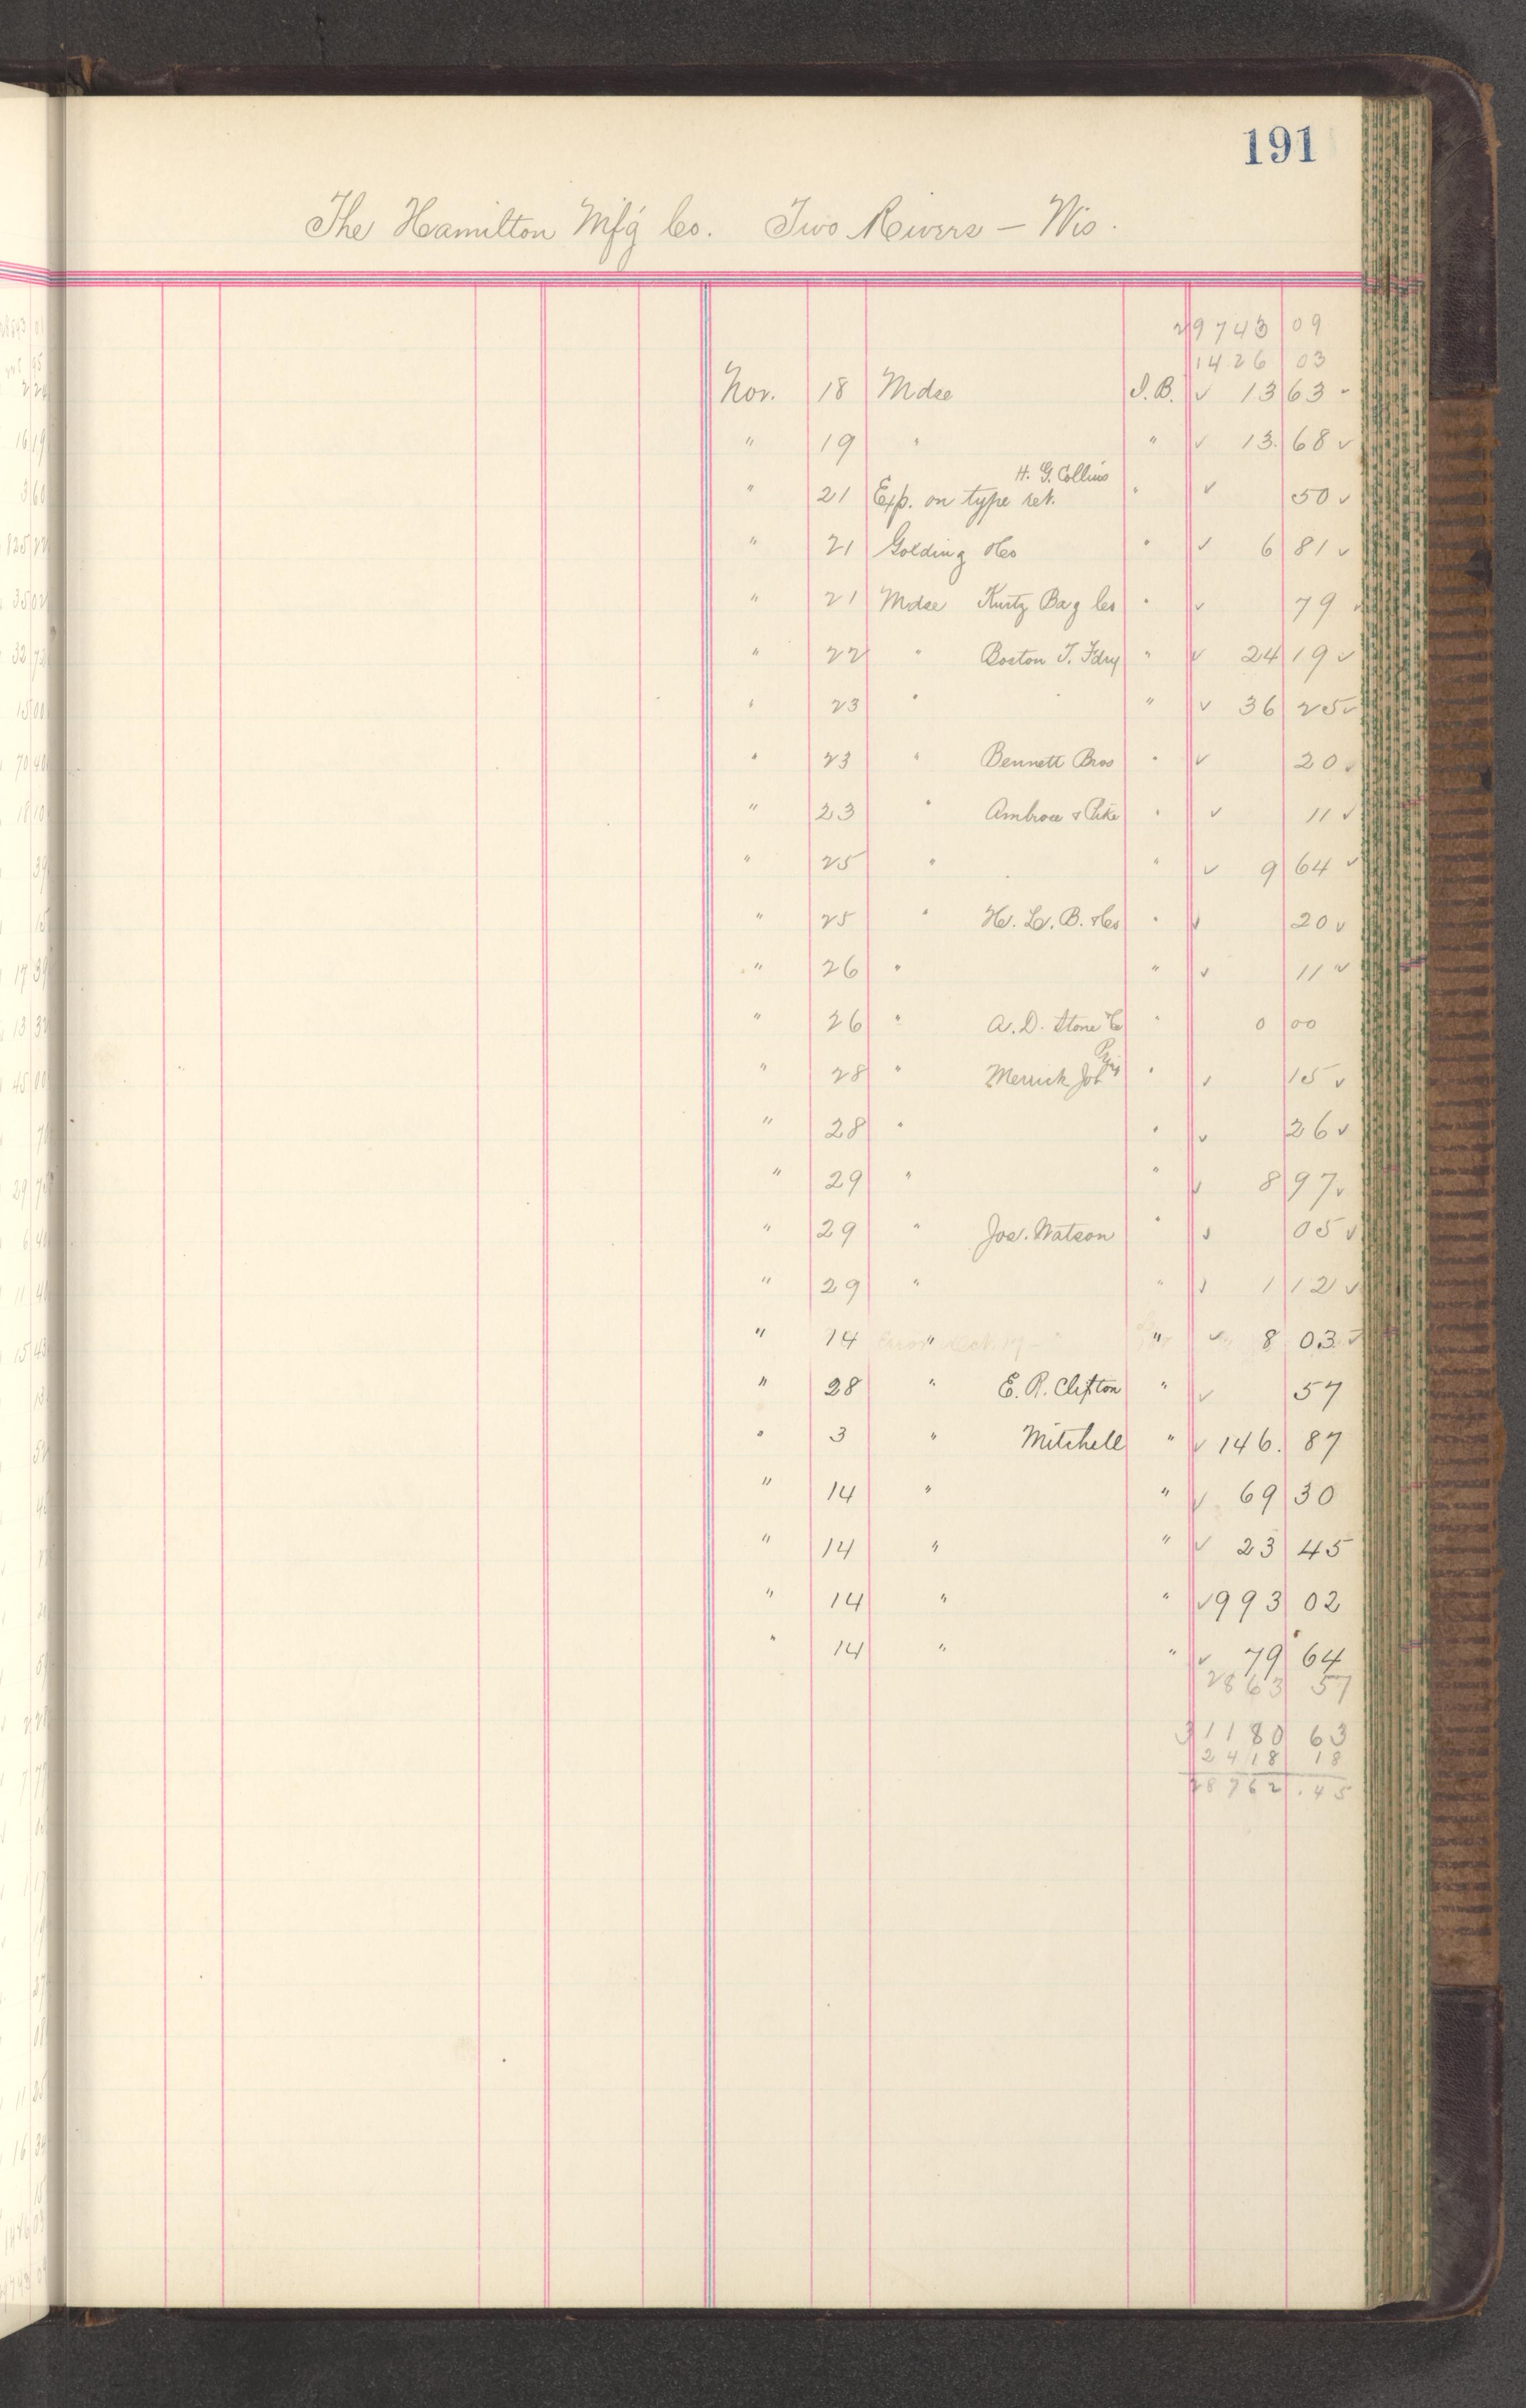 191
The Hamilton Mf'g Co. Two Rivers — Wis.
29743 09
1426 03
Nov. 18 Mdse I.B. ✓ 13 63 -
" 19 " " ✓ 13. 68 ✓
H. G. Collins
" 21 Exp. on type ret. " ✓ 50 ✓
" 21 Golding & Co " ✓ 6 81 ✓
" 21 Mdse Kurtz Bag Co " ✓ 79 ✓
" 22 " Boston T. Fdry " ✓ 24 19 ✓
" 23 " " ✓ 36 25 ✓
" 23 " Bennett Bros " ✓ 20 ✓
" 23 " Ambrose & Pike " ✓ 11 ✓
" 25 " " ✓ 9 64 ✓
" 25 " H. L. B. & Co " ✓ 20 ✓
" 26 " " ✓ 11 ✓
" 26 " A. D. Stone Co " 0 00
" 28 " Merrick Job " ✓ 15 ✓
" 28 " " ✓ 26 ✓
" 29 " " ✓ 8 97 ✓
" 29 " Jos. Watson " ✓ 05 ✓
" 29 " " ✓ 1 12 ✓
" 14 " " ✓ 8 03 ✓
" 28 " E. R. Clifton " ✓ 57
" 3 " Mitchell " ✓ 146. 87
" 14 " " ✓ 69 30
" 14 " " ✓ 23 45
" 14 " " ✓ 993 02
" 14 " " ✓ 79 64
2863 57
31180 63
2418 18
28762 .45